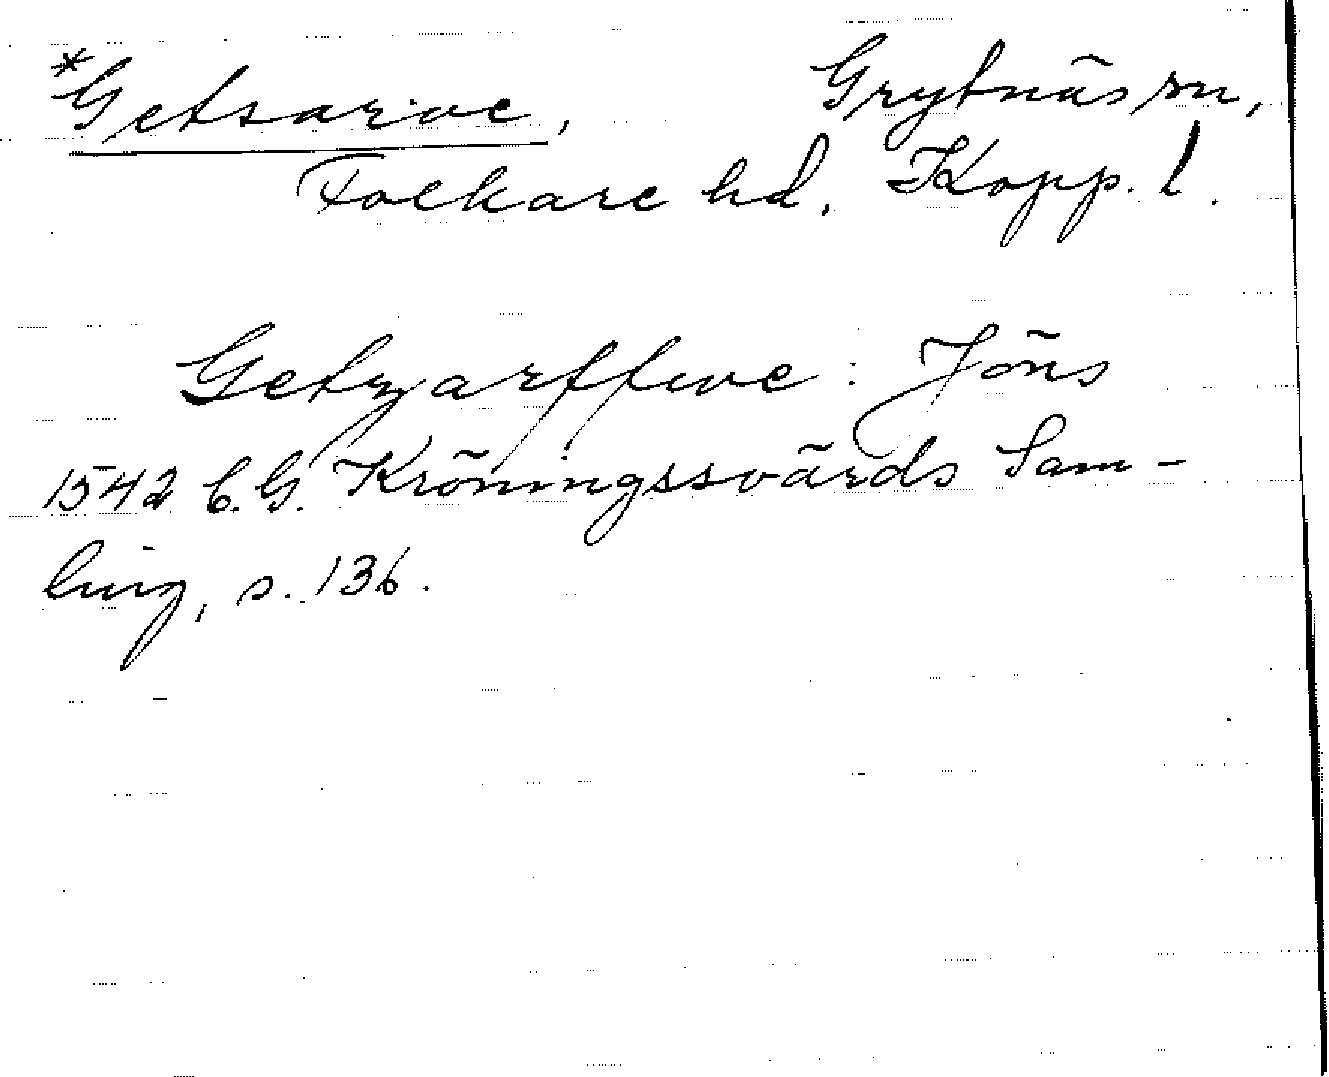 *Getsarve, Grytnäs sn,
Folkare hd, Kopp. l.
Getzarffwe: Jöns
1542 C. G. Kröningssvärds Sam-
ling, s. 136.